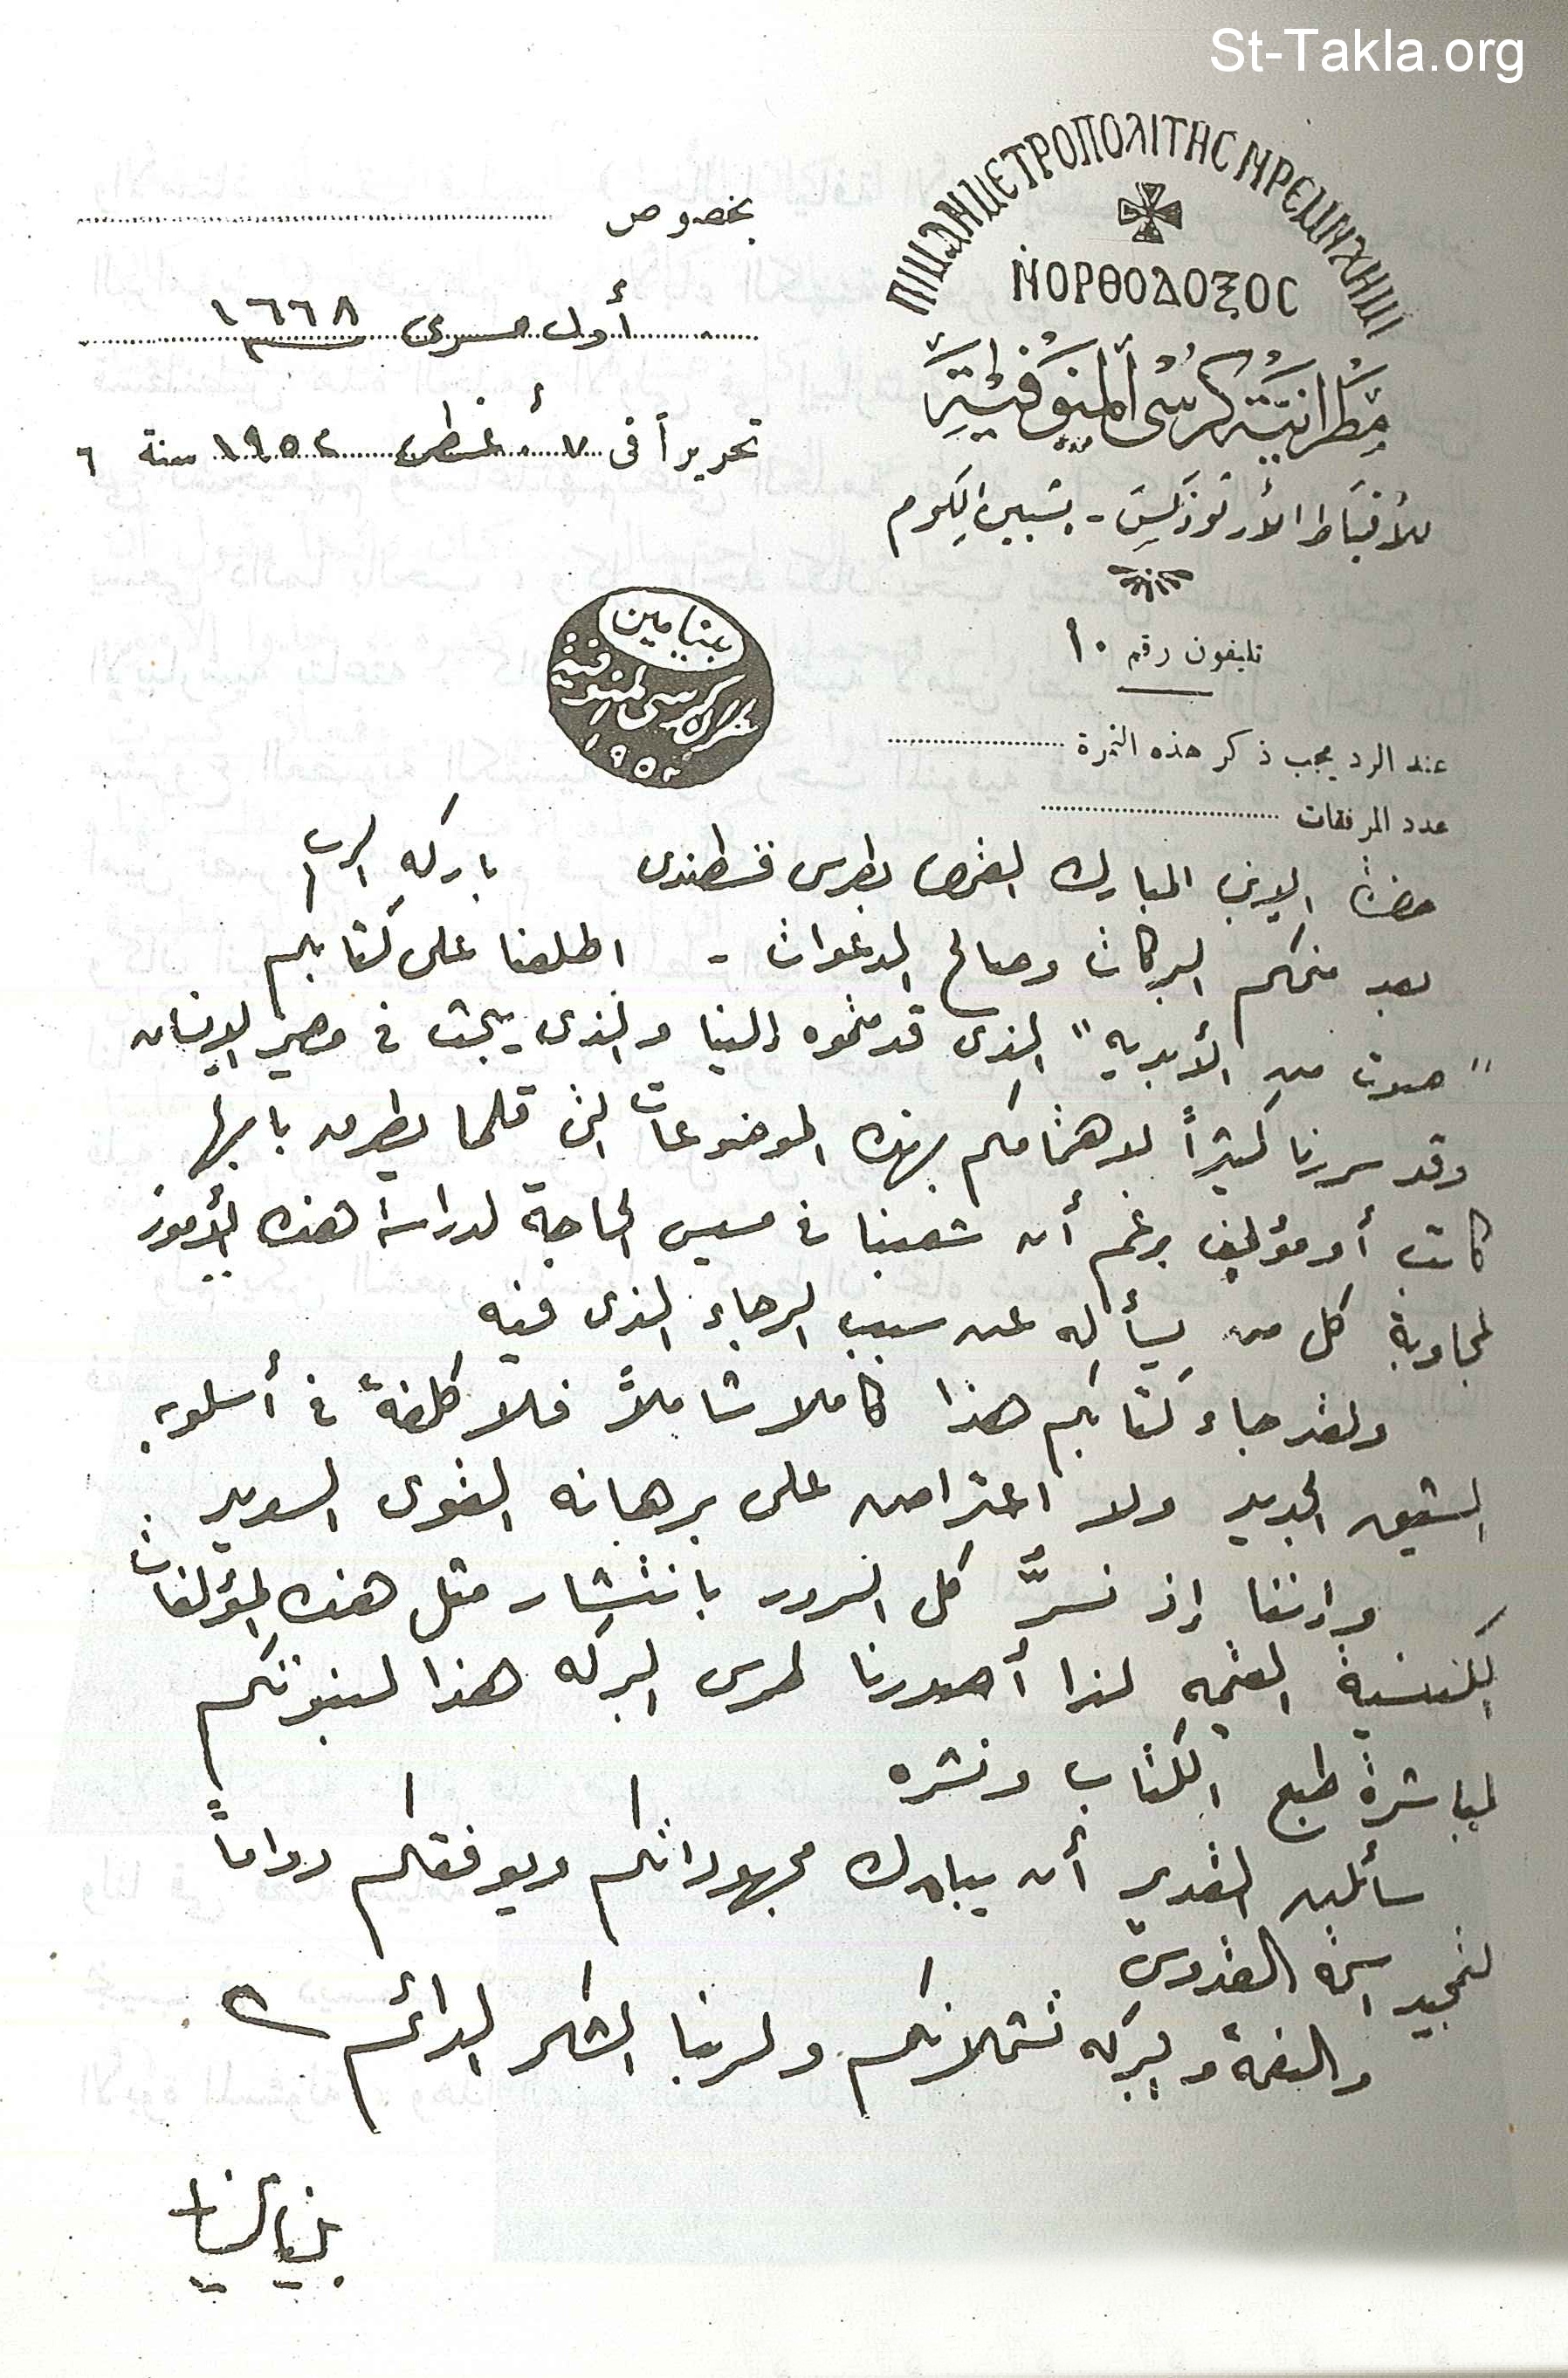 St-Takla.org
ⲠⲒⲘⲀⲚⲘⲈⲦⲢⲞⲠⲞⲖⲒⲦⲎⲤ ⲚⲢⲈⲘⲚⲬⲎⲘⲒ
ⲚⲞⲢⲐⲞⲆⲞⲜⲞⲤ
مطرانية كرسى المنوفية
للأقباط الأرثوذكس - بشبين الكوم
تليفون رقم ١٠
عند الرد يجب ذكر هذه النمرة
عدد المرفقات
بخصوص
أول مسرى ١٦٦٨
تحريراً فى ٧ أغسطس ١٩٥٢ سنة ٦
بنيامين
مطران كرسى المنوفية
١٩٥٢
حضرة الابن المبارك القمص بطرس قسطندى باركه الرب
بعد منحكم البركات وصالح الدعوات - اطلعنا على كتابكم
"صوت من الأبدية" الذى قدمتموه إلينا والذى يبحث فى مصير الإنسان
وقد سررنا كثيراً لاهتمامكم بهذه الموضوعات التى قلما يطرق بابها
كاتب أو مؤلف برغم أن شعبنا فى مسيس الحاجة لدراسة هذه الأمور
لمجاوبة كل من يسأله عن سبب الرجاء الذى فيه
ولقد جاء كتابكم هذا كاملا شاملاً فلا كلفة فى أسلوبه
الشيق الجديد ولا اعتراض على برهانه القوى السديد
وإننا إذ نسرُّ كل السرور بانتشار مثل هذه المؤلفات
الكنسية القيمه لذا أصدرنا طرس البركه هذا لبنوتكم
لمباشرة طبع الكتاب ونشره
سائلين القدير أن يبارك مجهوداتكم ويوفقكم دواماً
لتمجيد اسمه القدوس
والنعمة والبركه تشملانكم ولربنا الشكر الدائم